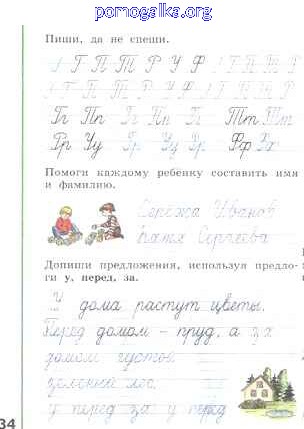 pomogalka.org
Пиши, да не спеши.
Г П Т Р У Ф Г П Т Р
Г П Т Р У Ф Г П Т Р
Гг Пп Гг Пп Гг Тт Тт
Рр Уу Рр Уу Рр Фф
Помоги каждому ребенку составить имя
и фамилию.
Сережа Иванов
Катя Сергеева
Допиши предложения, используя предло-
ги у, перед, за.
У дома растут цветы.
Перед домом – пруд, а за
домом густой
зеленый лес.
у перед за у перед
34